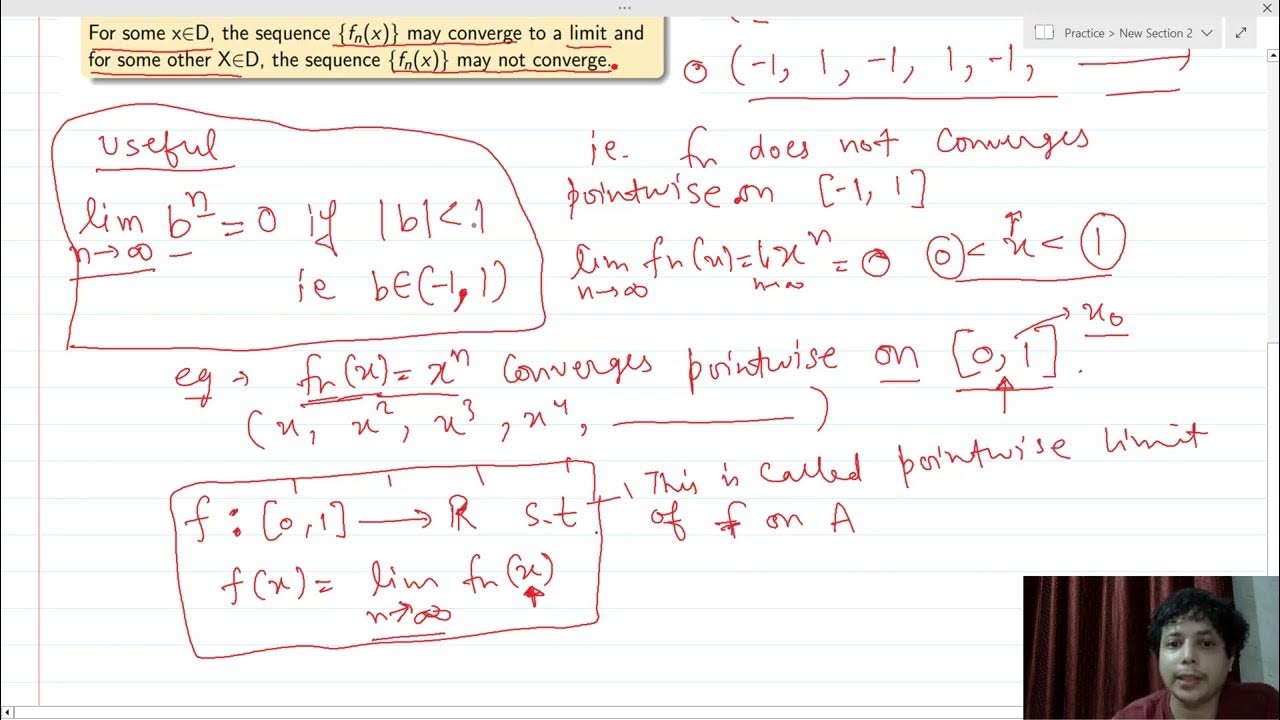 For some x∈D, the sequence {fₙ(x)} may converge to a limit and
for some other X∈D, the sequence {fₙ(x)} may not converge.
Practice > New Section 2
(-1, 1, -1, 1, -1, ———)
useful
lim bⁿ = 0 if |b| < 1
n→∞
ie b∈(-1, 1)
ie. fn does not converges
pointwise on [-1, 1]
lim fn(x) = lim xⁿ = 0 0 < x < 1
n→∞ n→∞
x₀
eg → fn(x) = xⁿ converges pointwise on [0, 1].
(x, x², x³, x⁴, ———)
f : [0, 1] → R s.t
f(x) = lim fn(x)
n→∞
This is called pointwise limit
of f on A